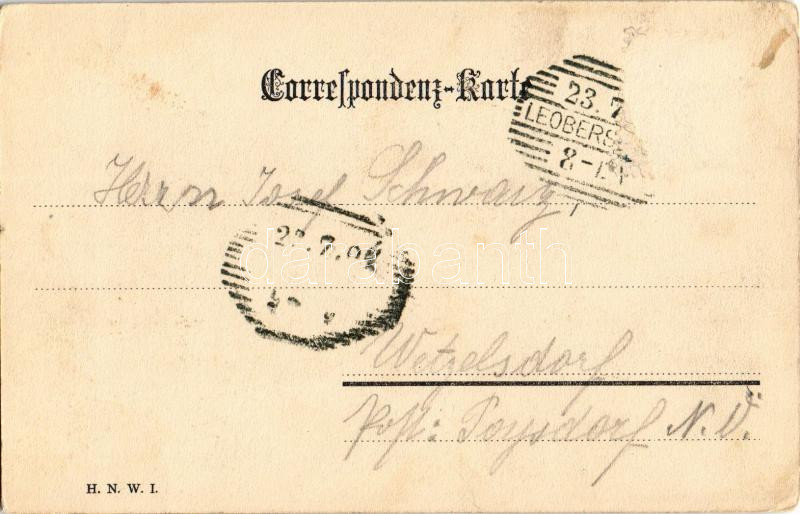 Correspondenz-Karte
23. 7
LEOBERS
8-
Herrn Josef Schwarz,
23. 7. 04
darabanth
Wetzelsdorf
Post: Poysdorf N. Ö.
H. N. W. I.